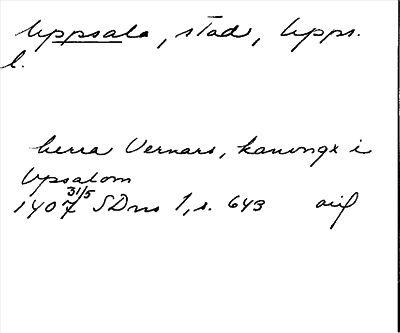 Uppsala, stad, Upps.
l.
herra Vernars, kanongx i
Upsalom
1407 31/5 SDns 1, s. 643 avif